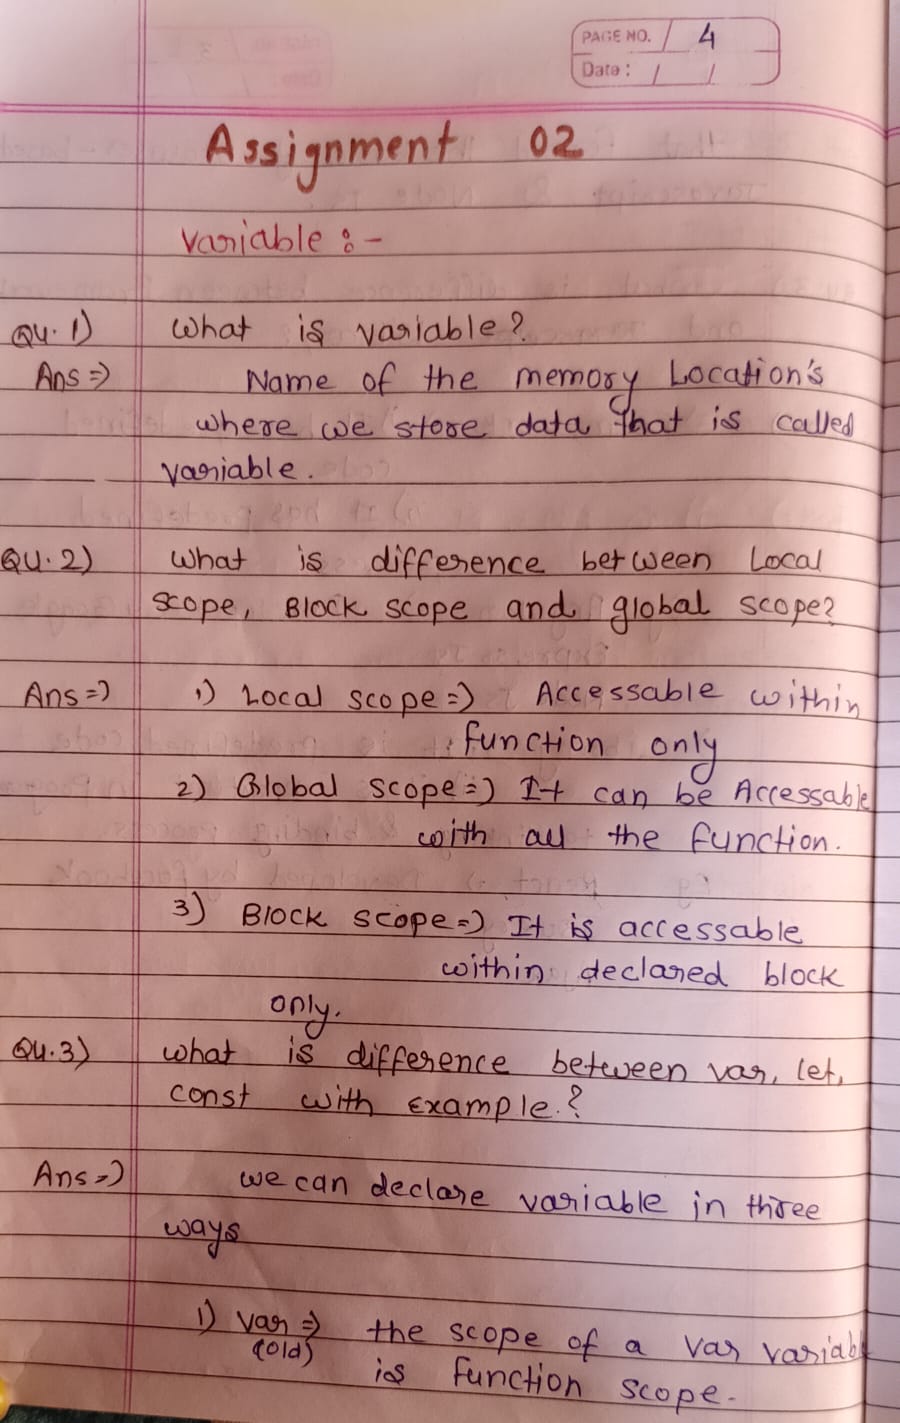 PAGE NO. / 4
Date : / /
Assignment 02
Variable :-
QU.1) What is variable?
Ans => Name of the memory Location's
where we store data that is called
variable.
QU.2) What is difference between Local
scope, Block scope and global scope?
Ans => 1) Local scope => Accessable within
function only
2) Global scope => It can be Accessable
with all the function.
3) Block scope => It is accessable
within declared block
only.
QU.3) What is difference between var, let,
const with Example.?
Ans => we can declare variable in three
ways
1) var => the scope of a var variable
(old) is function scope.